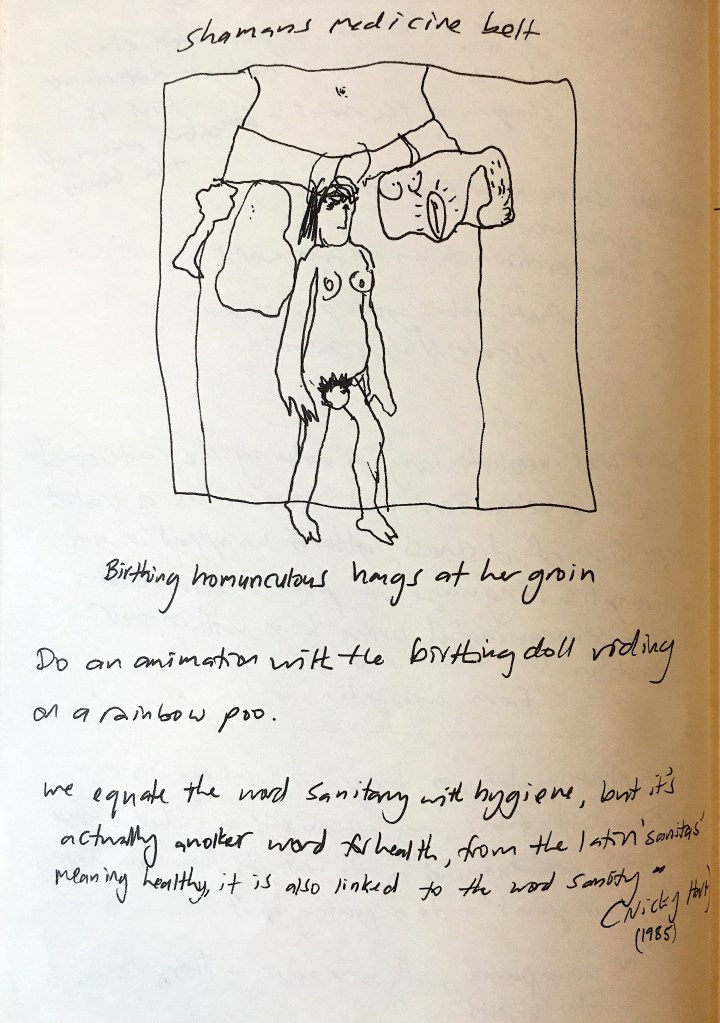 Shamans medicine belt
Birthing homunculous hangs at her groin
Do an animation with the birthing doll riding
on a rainbow poo.
we equate the word sanitary with hygiene, but it's
actually another word for health, from the latin 'sanitas'
meaning healthy, it is also linked to the word sanity "
(Nicky Hart)
(1985)